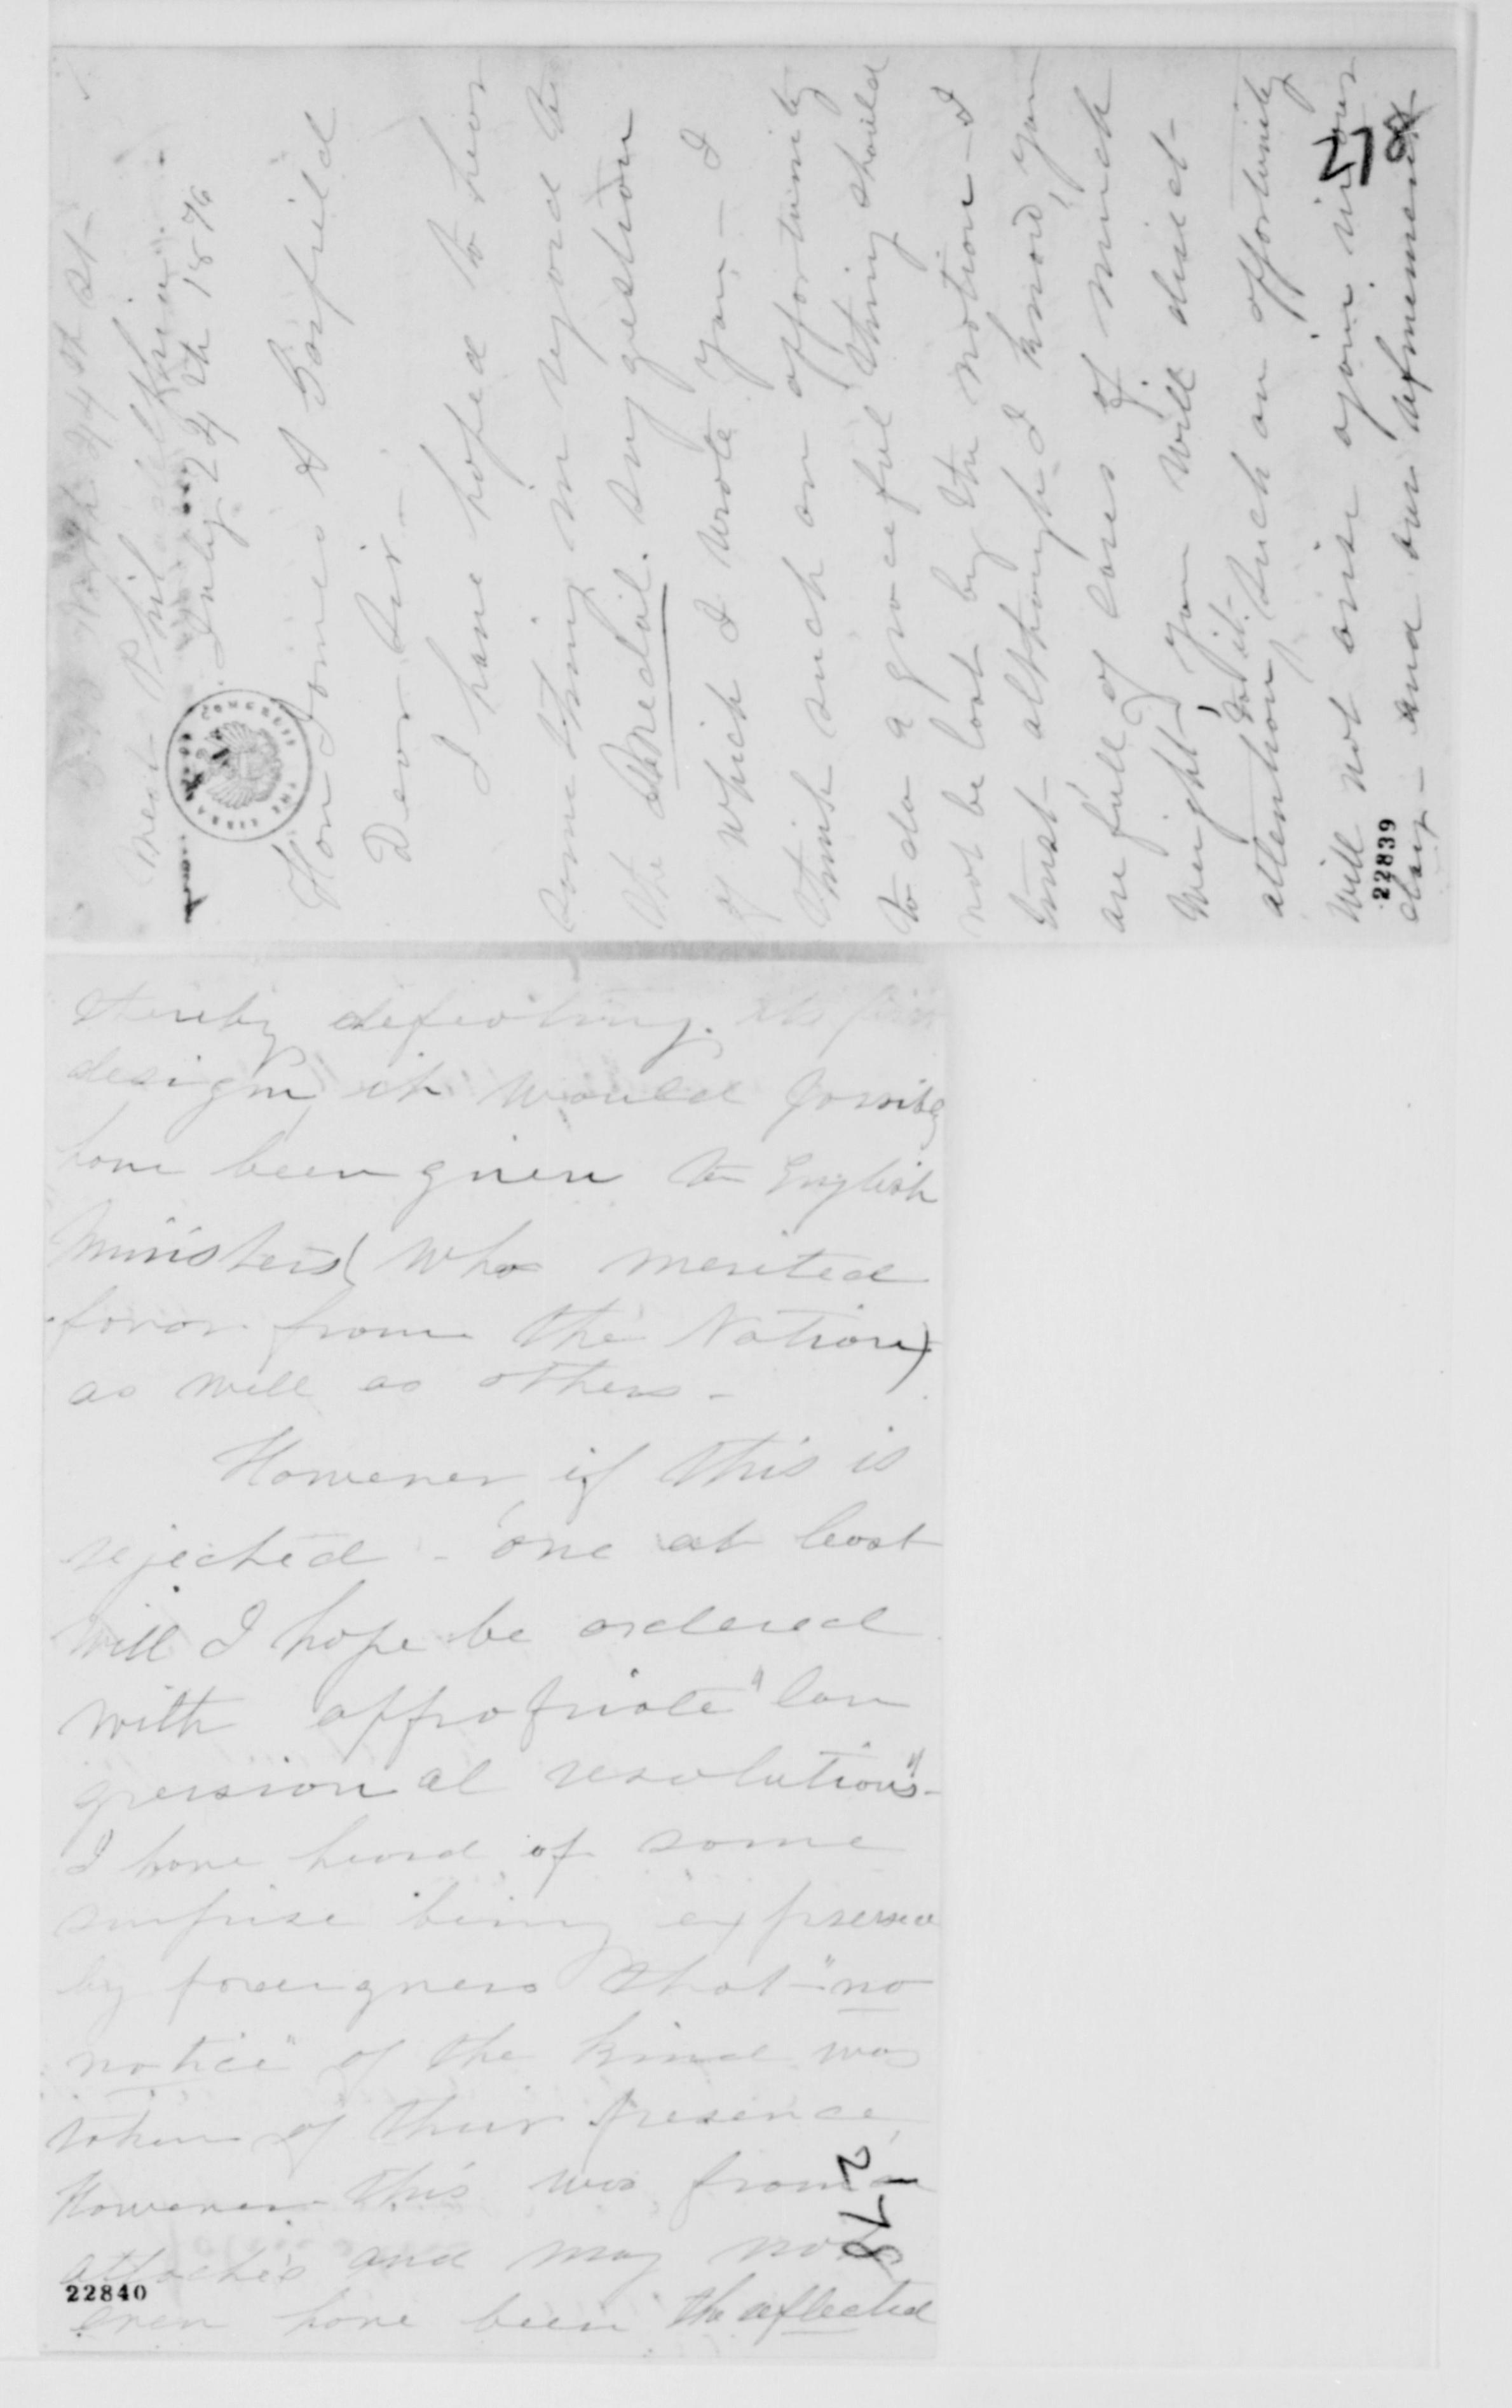 24th St
West Phil
July 24th 1876
Hon James A Garfield
Dear Sir-
I have hoped to hear
something in regard to
the Medal. suggestion
of which I wrote you,- I
think such an opportunity
to do a graceful thing should
not be lost by the nation- I
trust- although I know, you
are full of cares of much
weight- you will direct
attention to it. such an opportunity
will not arise again in our
day- and our refinement
278
22839
thereby defeating its
design, it would
have been given to English
Ministers (who merited
favor from the Nation)
as well as others-
However, if this is
rejected - one at least
will I hope be ordered
with appropriate "Con
gressional resolutions"-
I have heard of some
surprise being expressed
by foreigners that- "no
notice" of the kind was
taken of their presence,
However this was from
attachés and may not
even have been the reflected
278
22840